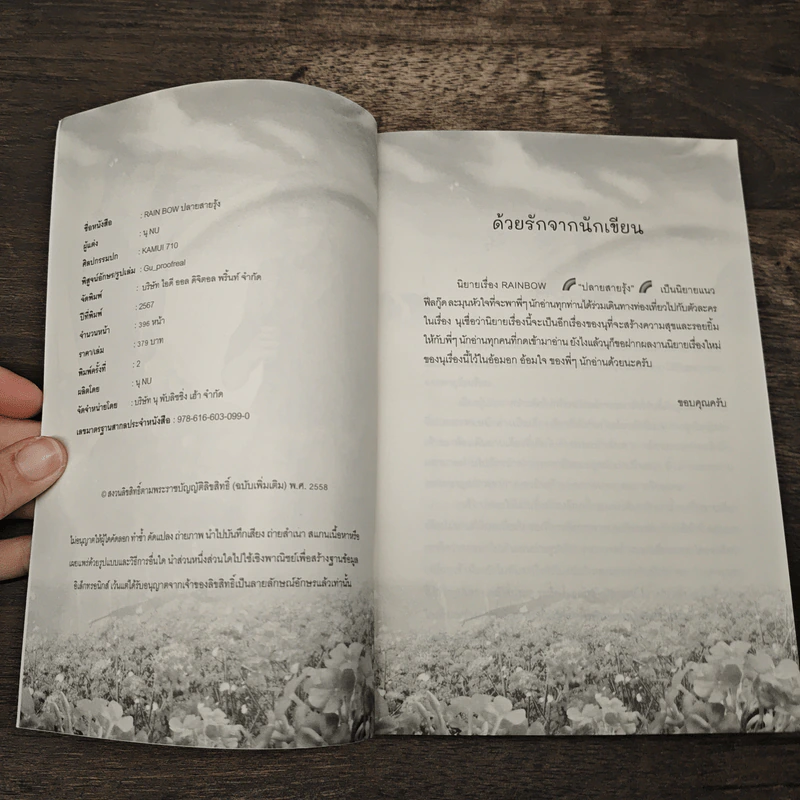 ชื่อหนังสือ : RAIN BOW ปลายสายรุ้ง
ผู้แต่ง : นุ NU
ศิลปกรรมปก : KAMUI 710
พิสูจน์อักษร/รูปเล่ม : Gu_proofreal
จัดพิมพ์ : บริษัท ไอดี ออล ดิจิตอล พริ้นท์ จำกัด
ปีที่พิมพ์ : 2567
จำนวนหน้า : 396 หน้า
ราคา/เล่ม : 379 บาท
พิมพ์ครั้งที่ : 2
ผลิตโดย : นุ NU
จัดจำหน่ายโดย : บริษัท นุ พับลิชชิ่ง เฮ้า จำกัด
เลขมาตรฐานสากลประจำหนังสือ : 978-616-603-099-0
© สงวนลิขสิทธิ์ตามพระราชบัญญัติลิขสิทธิ์ (ฉบับเพิ่มเติม) พ.ศ. 2558
ไม่อนุญาตให้ผู้ใดคัดลอก ทำซ้ำ ดัดแปลง ถ่ายภาพ นำไปบันทึกเสียง ถ่ายสำเนา สแกนเนื้อหาหรือ
เผยแพร่ด้วยรูปแบบและวิธีการอื่นใด นำส่วนหนึ่งส่วนใดไปใช้เชิงพาณิชย์เพื่อสร้างฐานข้อมูล
อิเล็กทรอนิกส์ เว้นแต่ได้รับอนุญาตจากเจ้าของลิขสิทธิ์เป็นลายลักษณ์อักษรแล้วเท่านั้น
ด้วยรักจากนักเขียน
นิยายเรื่อง RAINBOW 🌈 "ปลายสายรุ้ง" 🌈 เป็นนิยายแนว
ฟีลกู๊ด ละมุนหัวใจที่จะพาพี่ๆ นักอ่านทุกท่านได้ร่วมเดินทางท่องเที่ยวไปกับตัวละคร
ในเรื่อง นุเชื่อว่านิยายเรื่องนี้จะเป็นอีกเรื่องของนุที่จะสร้างความสุขและรอยยิ้ม
ให้กับพี่ๆ นักอ่านทุกคนที่กดเข้ามาอ่าน ยังไงแล้วนุก็ขอฝากผลงานนิยายเรื่องใหม่
ของนุเรื่องนี้ไว้ในอ้อมอก อ้อมใจ ของพี่ๆ นักอ่านด้วยนะครับ
ขอบคุณครับ